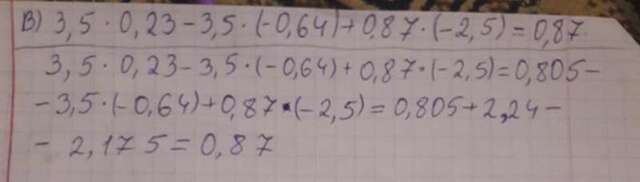 В) 3,5 · 0,23 - 3,5 · (-0,64) + 0,87 · (-2,5) = 0,87
3,5 · 0,23 - 3,5 · (-0,64) + 0,87 · (-2,5) = 0,805 -
- 3,5 · (-0,64) + 0,87 · (-2,5) = 0,805 + 2,24 -
- 2,175 = 0,87